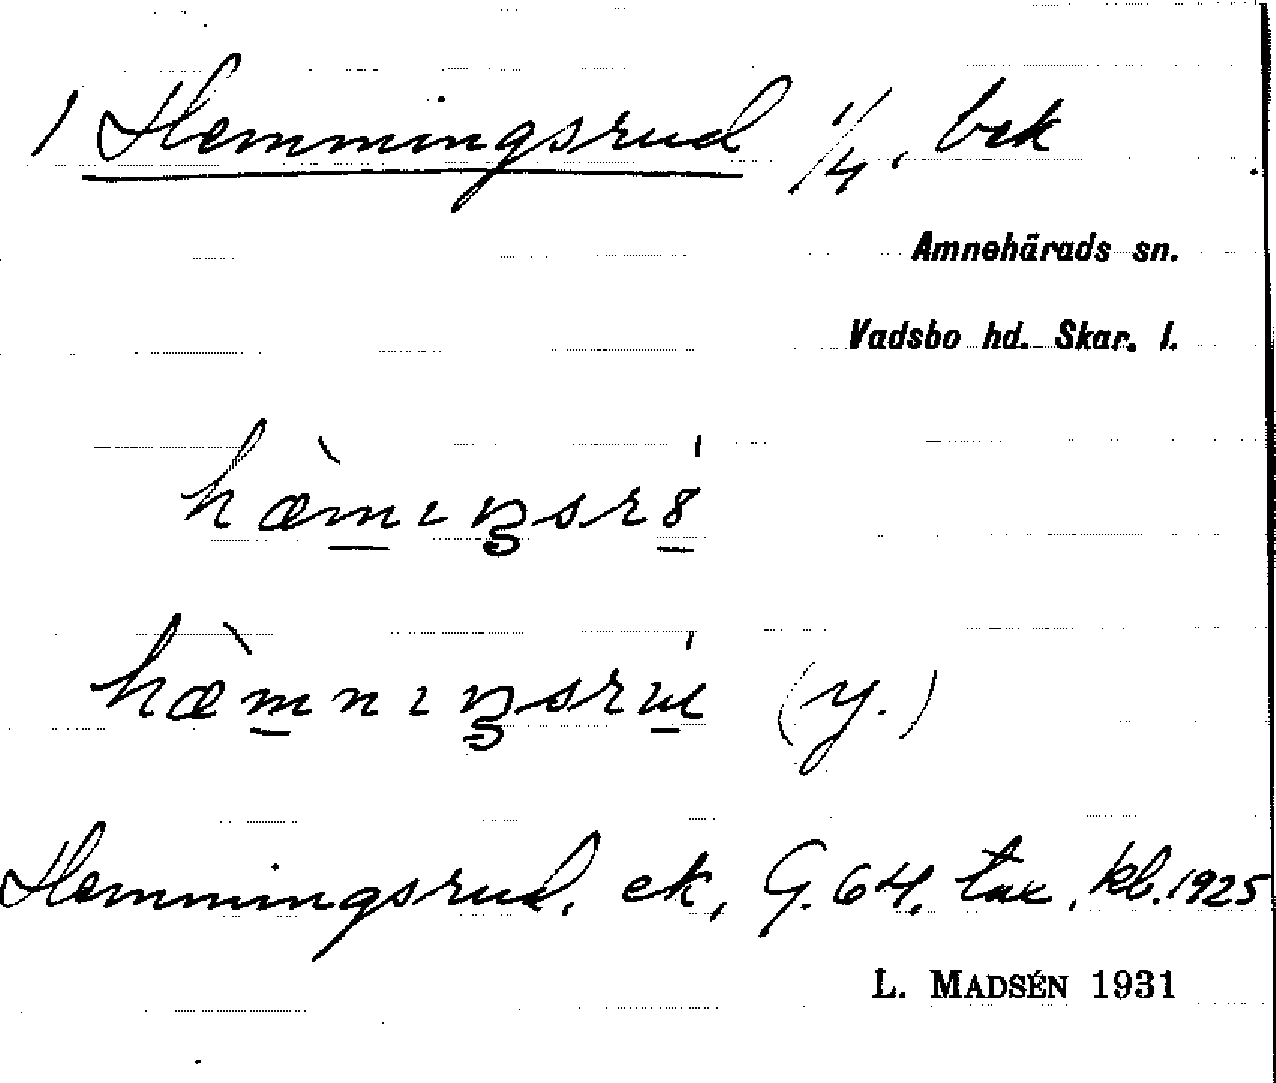 1 Hemmingsrud 1/4, bek
Amnehärads sn.
Vadsbo hd. Skar. l.
(y.)
Hemmingsrud, ek, G. 64, tax, kb. 1925
L. MADSÉN 1931